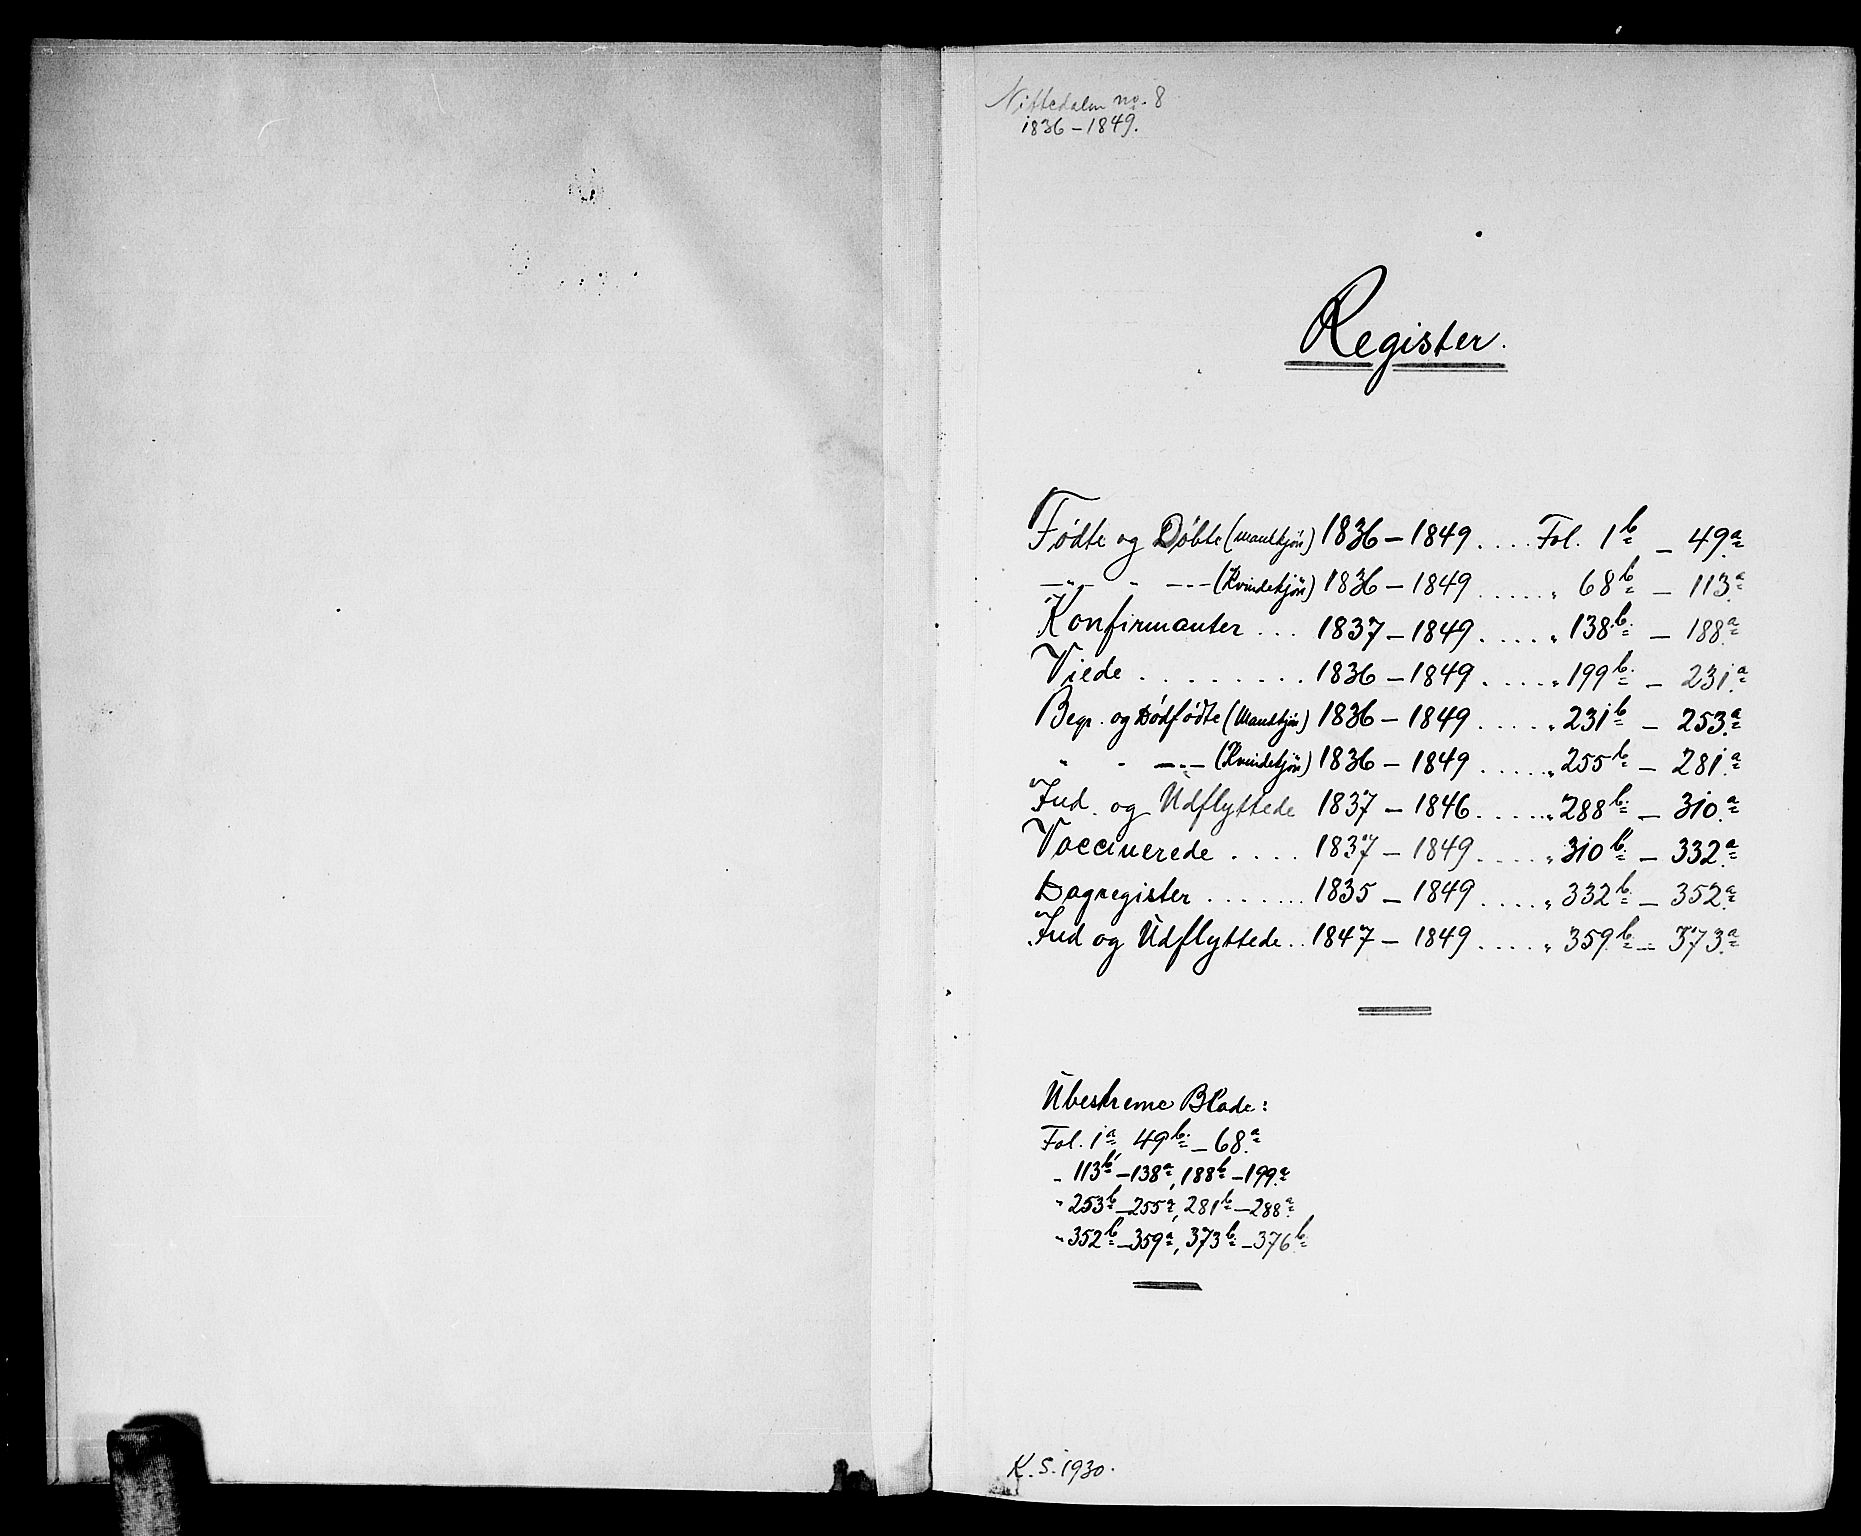 Nittedalen no. 8
1836 – 1849.
Register.
Fødte og Døbte (Mandkjøn) 1836 – 1849 .... Fol. 1b – 49a
–"– " –"– (Kvindekjøn) 1836 – 1849 ..... " 68b – 113a
Konfirmanter ... 1837 – 1849 ..... " 138b – 188a
Viede ........ 1836 – 1849 ..... " 199b – 231a
Begr. og Dødfødte (Mandkjøn) 1836 – 1849 ..... " 231b – 253a
" " –"– (Kvindekjøn) 1836 – 1849 ..... " 255b – 281a
Ind. og Udflyttede 1837 – 1846 ..... " 288b – 310a
Vaccinerede .... 1837 – 1849 ..... " 310b – 332a
Dagregister ....... 1835 – 1849 ..... " 332b – 352a
Ind og Udflyttede .. 1847 – 1849 ..... " 359b – 373a
Ubeskrevne Blade:
Fol. 1a, 49b – 68a
" 113b – 138a, 188b – 199a
" 253b – 255a, 281b – 288a
" 352b – 359a, 373b – 376b
K. S. 1930.